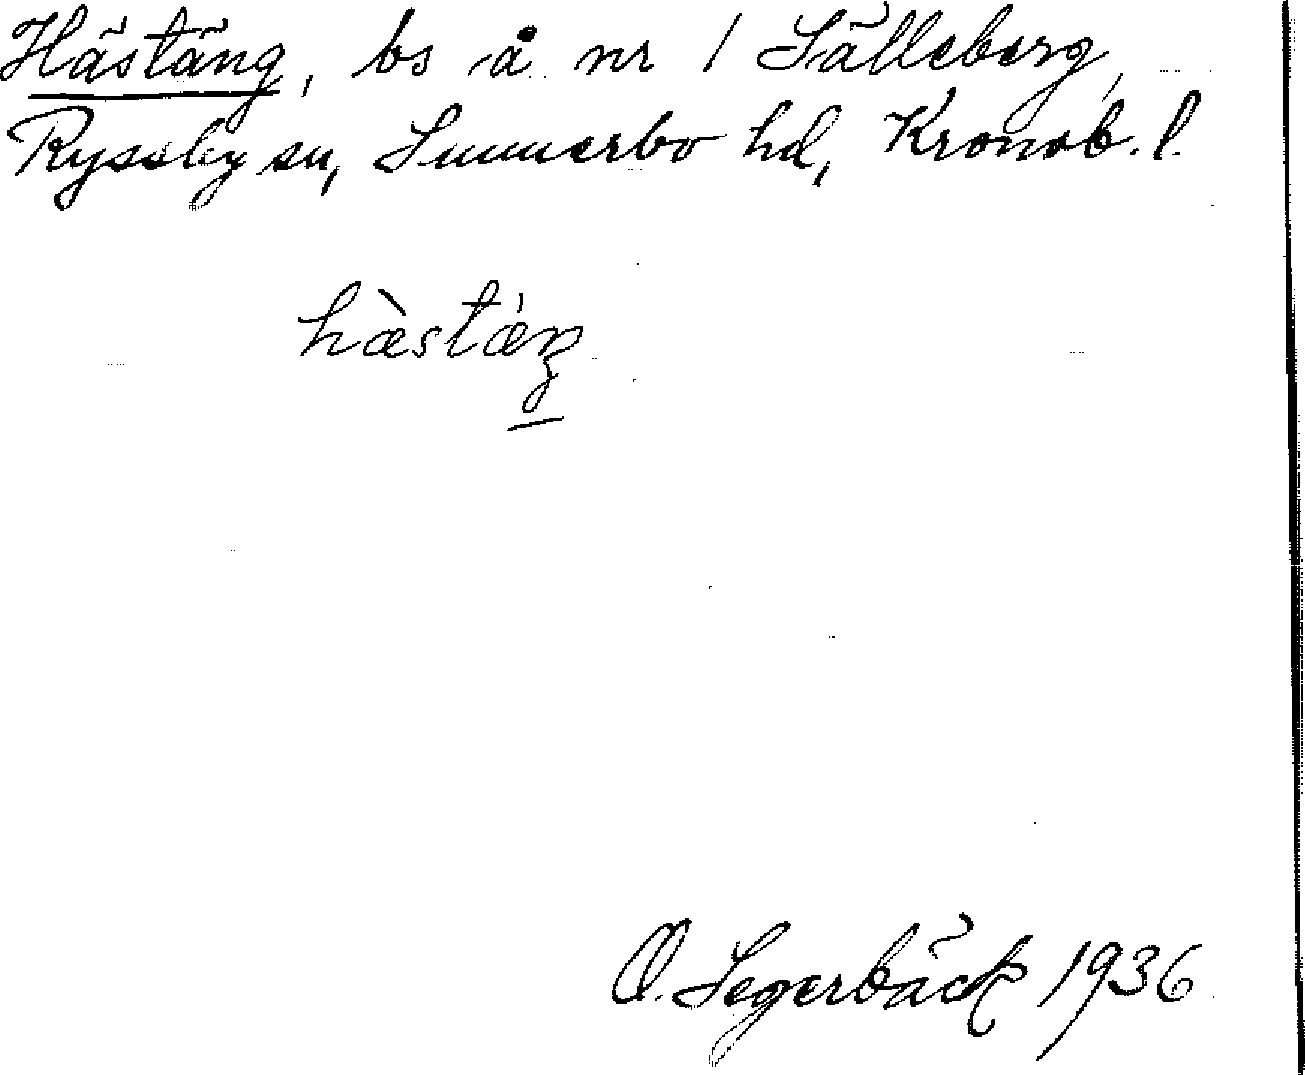 Hästäng, bs å nr 1 Sälleberg,
Ryssby sn, Sunnerbo hd, Kronob. l.
hæ̀stǽŋ
O. Segerbäck 1936